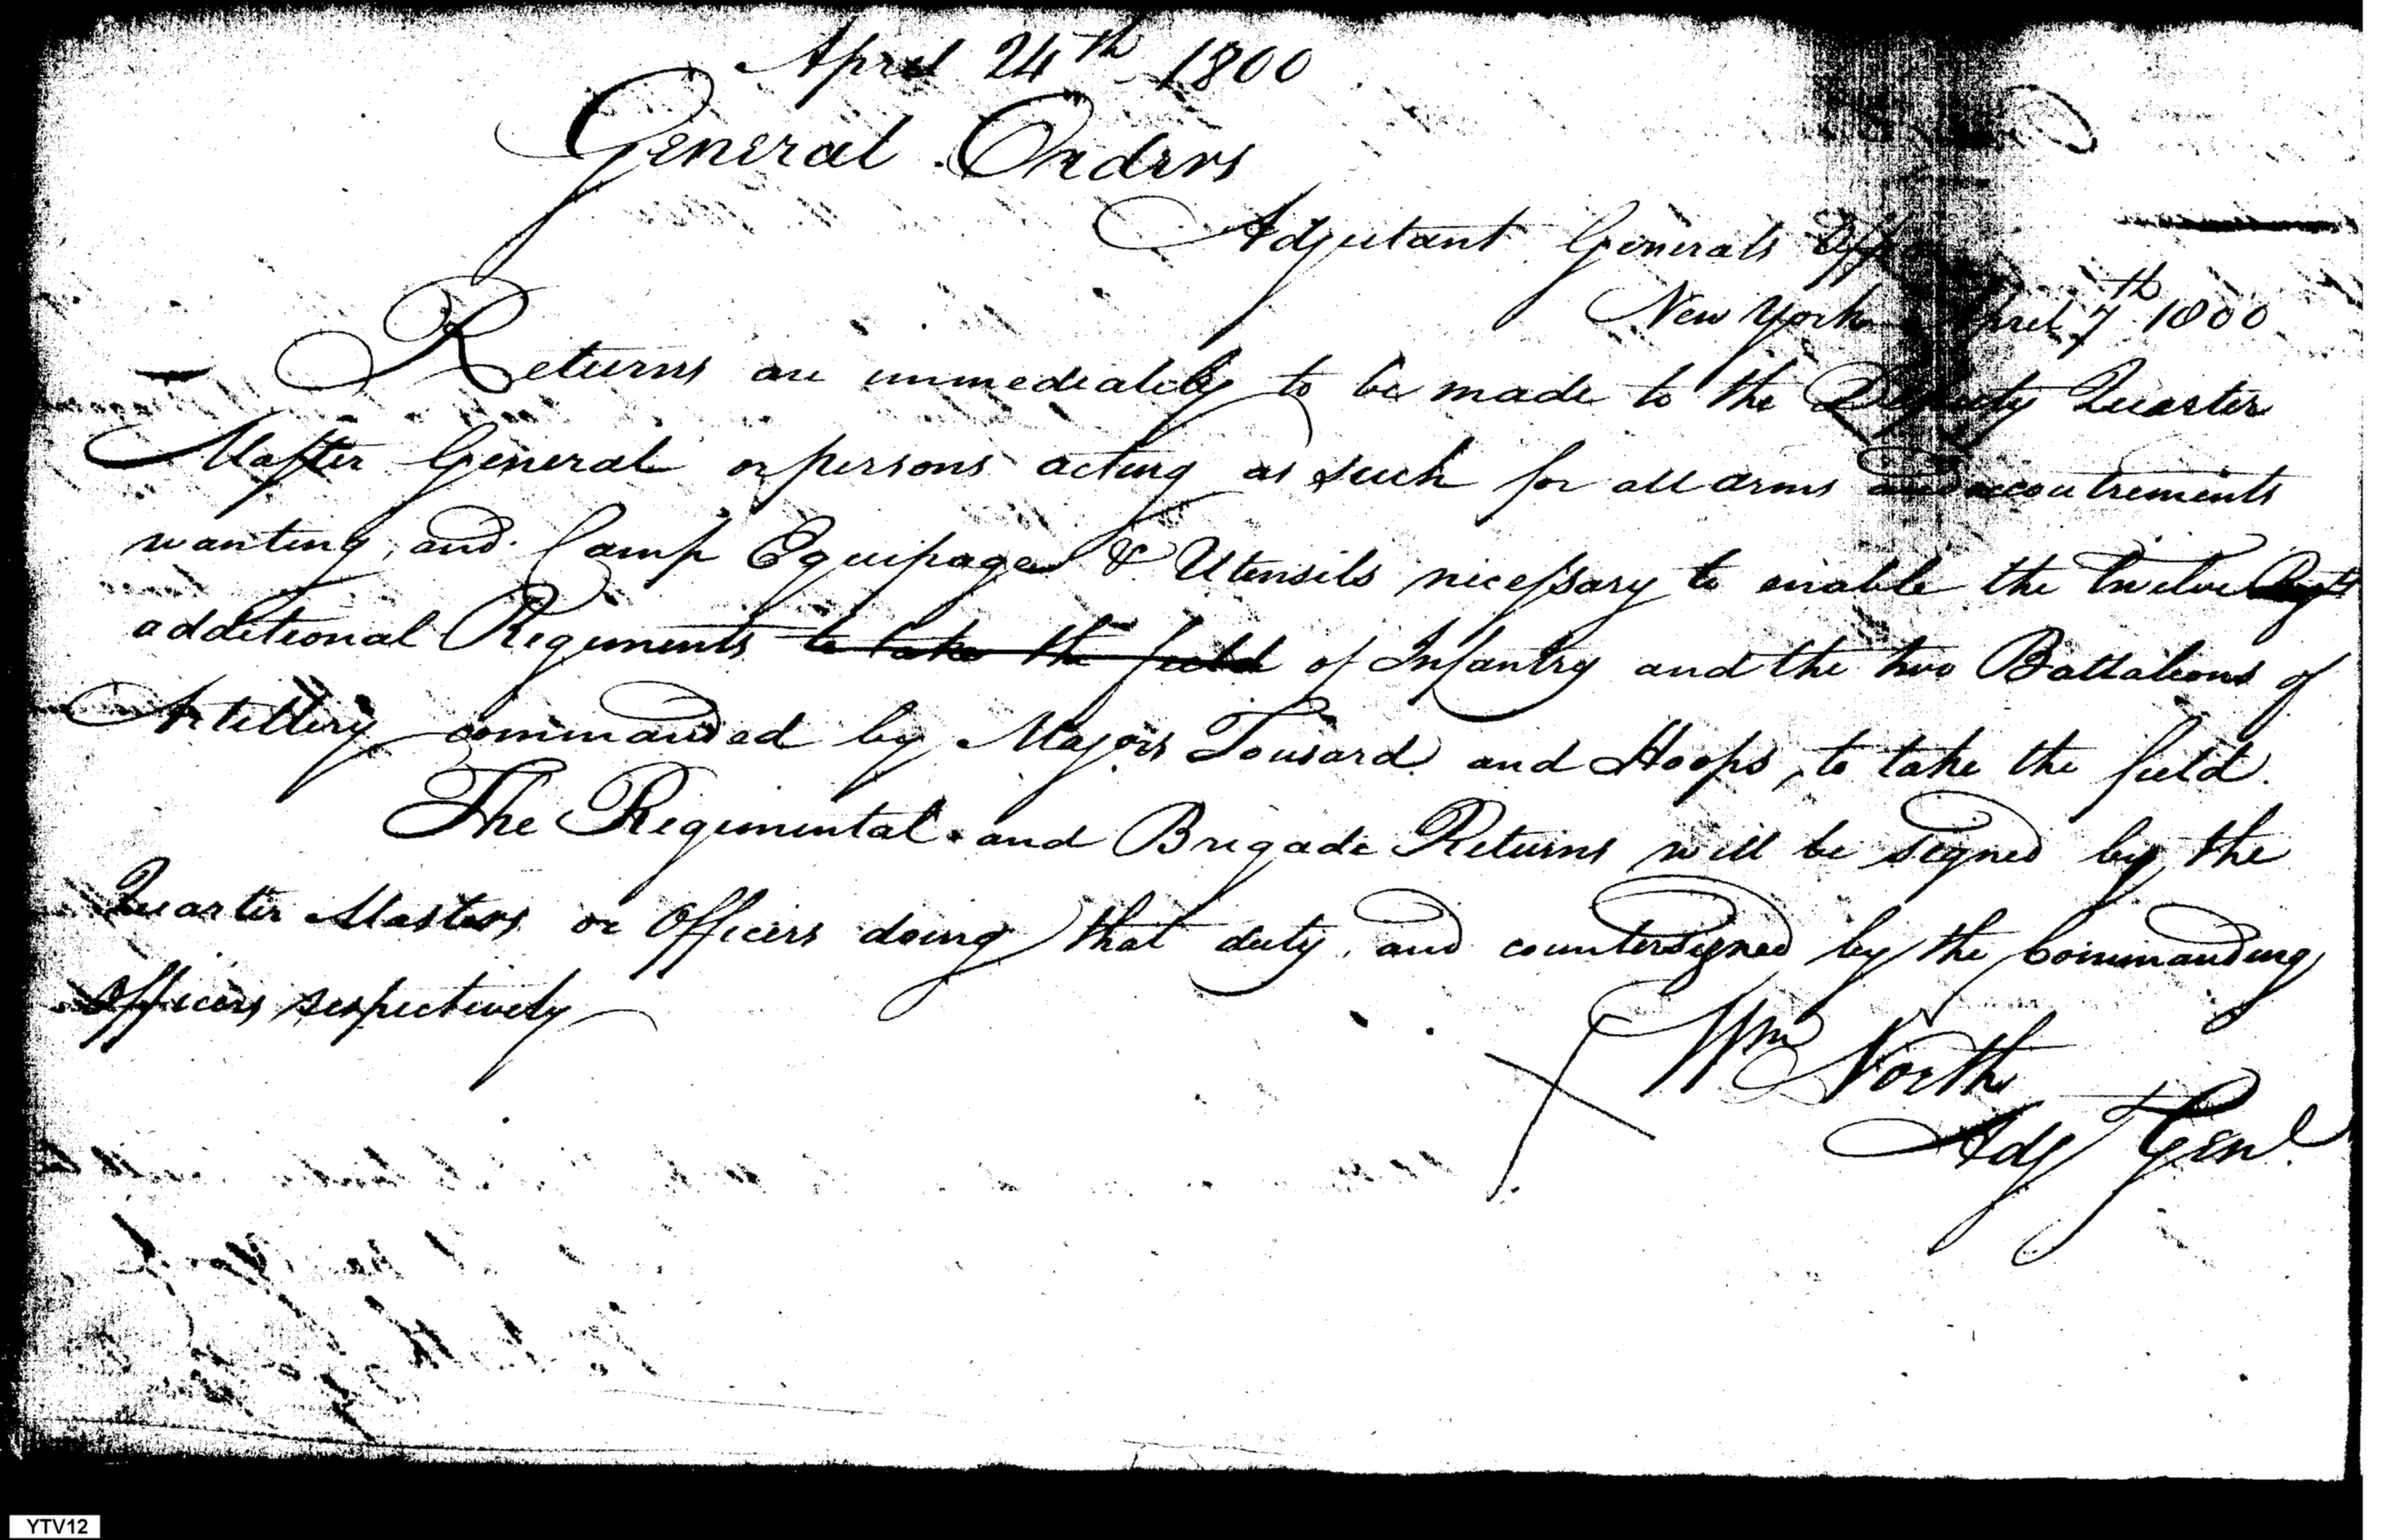 April 24th 1800
General Orders
Adjutant Generals Office
New York April 7th 1800
Returns are immediately to be made to the Deputy Quarter
Master General or persons acting as such for all arms and accoutrements
wanting, and Camp Equipage & Utensils necessary to enable the twelve Regts
additional Regiments to take the field of Infantry and the two Battalions of
Artillery commanded by Majors Tousard and Hoops, to take the field.
The Regimental and Brigade Returns will be signed by the
Quarter Masters or Officers doing that duty, and countersigned by the Commanding
Officers respectively
Wm North
Adj Genl
YTV12